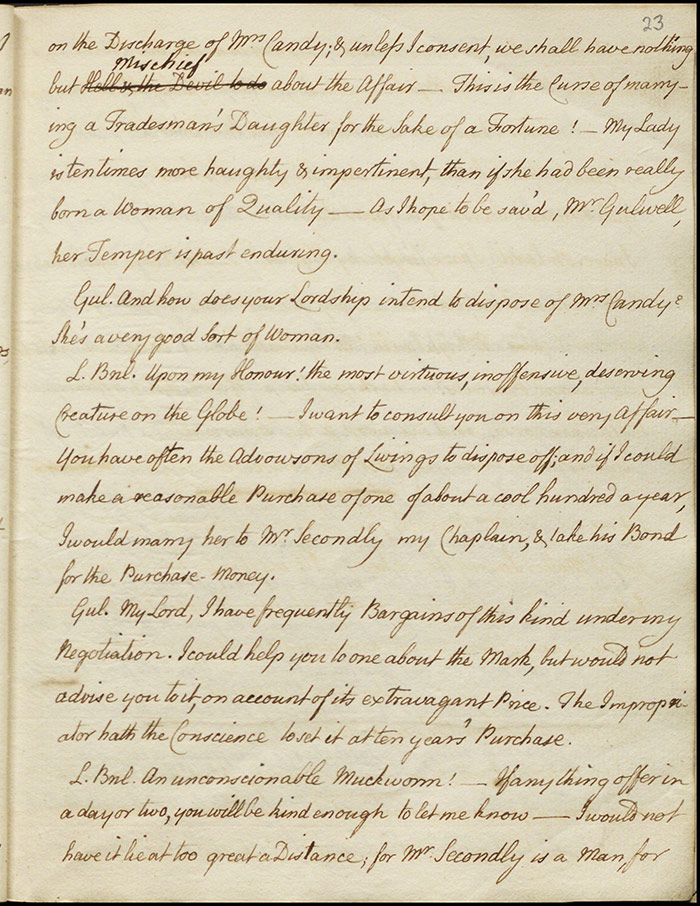 23
on the Discharge of Mrs Candy; & unless I consent, we shall have nothing
Mischief
but Hell & the Devil to do about the Affair — This is the Curse of marry-
ing a Tradesman's Daughter for the Sake of a Fortune! — My Lady
is ten times more haughty & impertinent, than if she had been really
born a Woman of Quality — As I hope to be sav'd, Mr. Gulwell,
her Temper is past enduring.
Gul. And how does your Lordship intend to dispose of Mrs Candy?
She's a very good Sort of Woman.
L. Bnl. Upon my Honour! the most virtuous, inoffensive, deserving
Creature on the Globe! — I want to consult you on this very Affair —
You have often the Advowsons of Livings to dispose off; and if I could
make a reasonable Purchase of one of about a cool hundred a year,
I would marry her to Mr. Secondly my Chaplain, & take his Bond
for the Purchase-Money.
Gul. My Lord, I have frequently Bargains of this kind under my
Negotiation. I could help you to one about the Mark, but would not
advise you to it, on account of its extravagant Price. The Impropri-
ator hath the Conscience to set it at ten year's Purchase.
L. Bnl. An unconscionable Muckworm! — If any thing offer in
a day or two, you will be kind enough to let me know — I would not
have it lie at too great a Distance; for Mr. Secondly is a Man, for